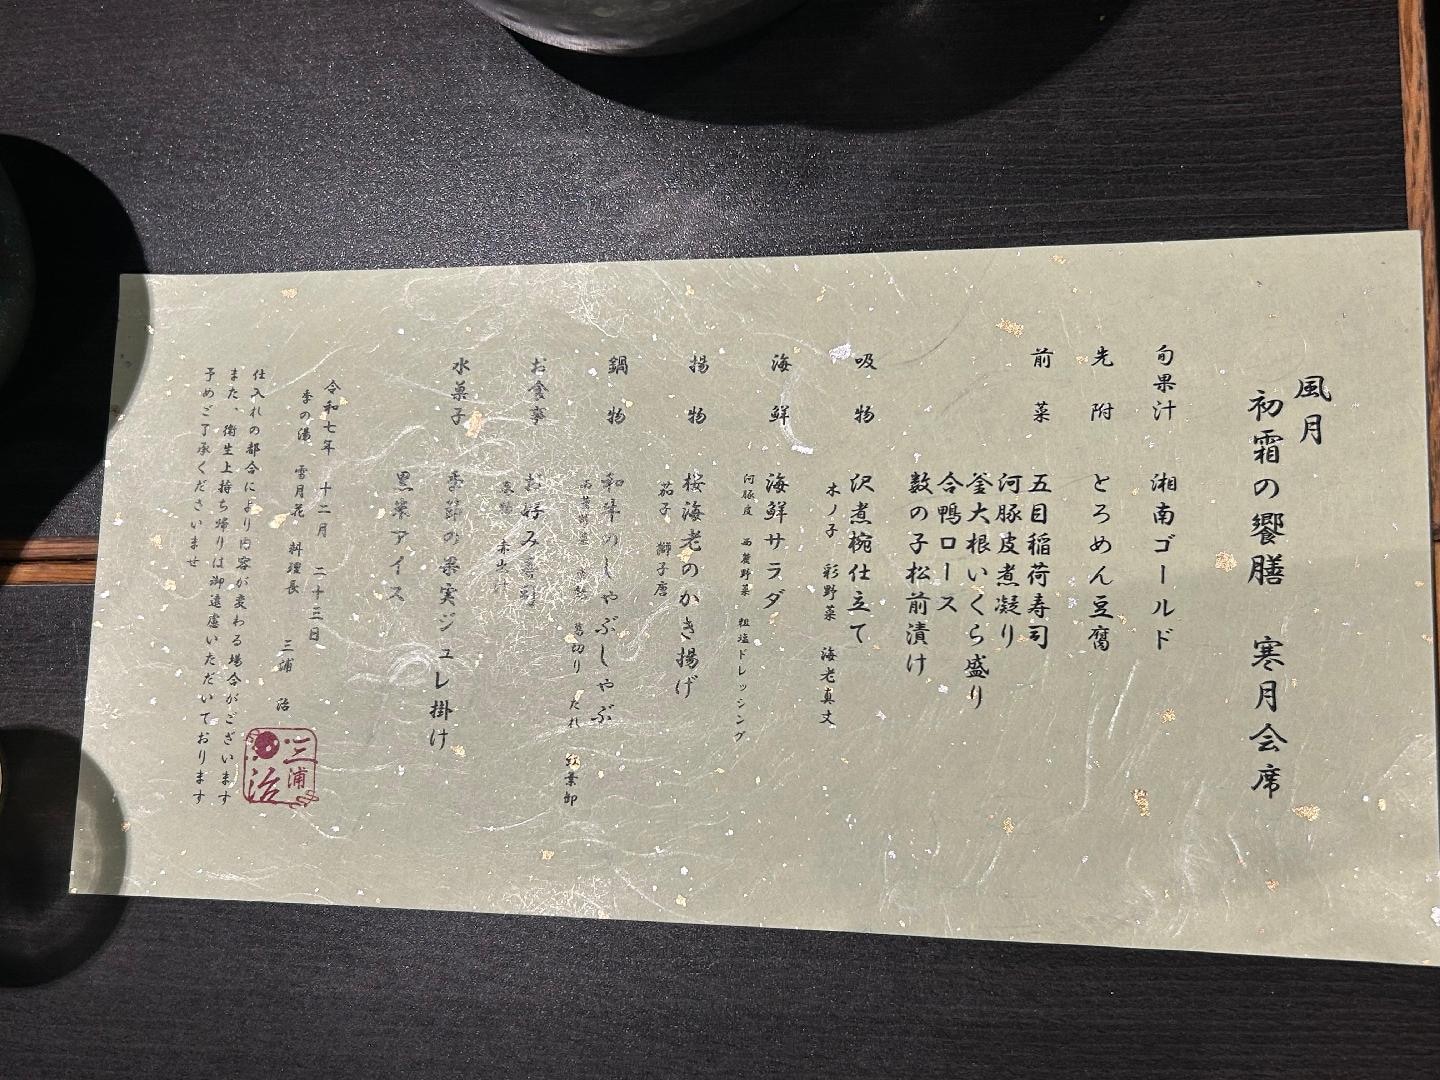 風月
初霜の饗膳 寒月会席
旬果汁 湘南ゴールド
先附 とろめん豆腐
前菜 五目稲荷寿司
河豚皮煮凝り
釜大根いくら盛り
合鴨ロース
数の子松前漬け
吸物 沢煮椀仕立て
木ノ子 彩野菜 海老真丈
海鮮 海鮮サラダ
河豚皮 西麓野菜 粗塩ドレッシング
揚物 桜海老のかき揚げ
茄子 獅子唐
鍋物 和牛のしゃぶしゃぶ
葛切り たれ 紅葉卸
お食事 お好み寿司
赤出汁
水菓子 季節の果実ジュレ掛け
黒米アイス
令和七年 十二月 二十三日
季の湯 雪月花 料理長 三浦 治
三浦
治
仕入れの都合により内容が変わる場合がございます
また、衛生上持ち帰りは御遠慮いただいております
予めご了承くださいませ